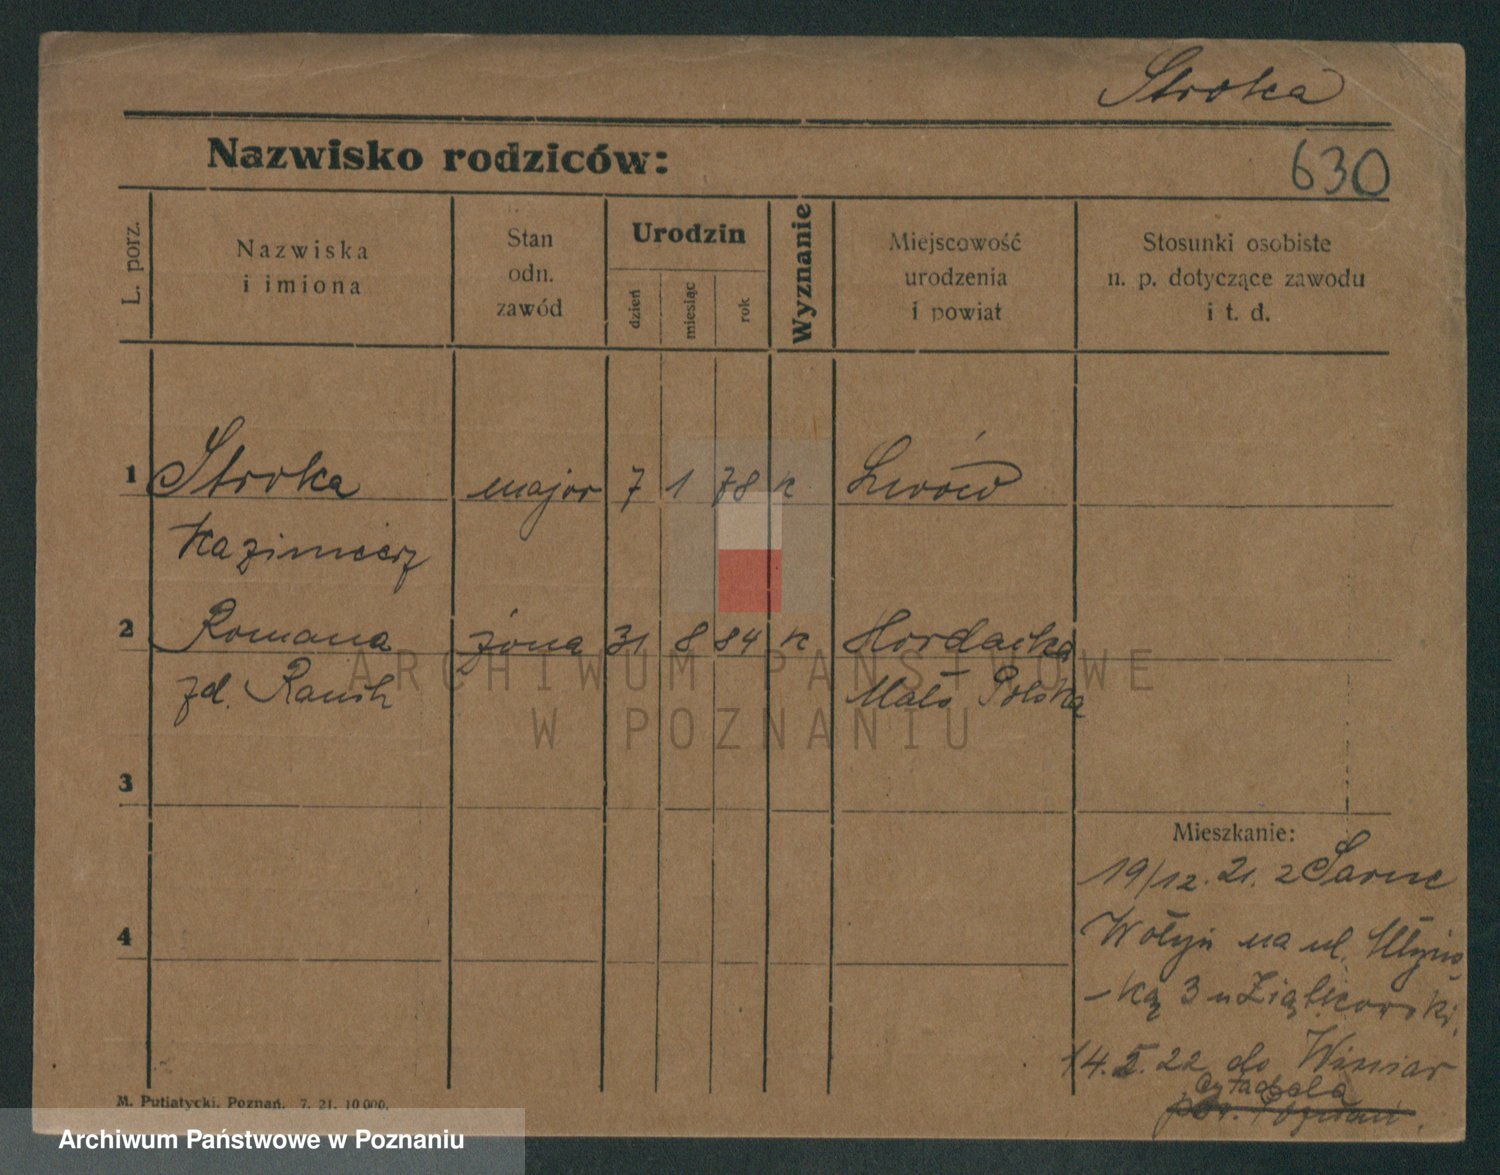 Stroka
Nazwisko rodziców:
630
L. porz.
Nazwiska
i imiona
Stan
odn.
zawód
Urodzin
dzień
miesiąc
rok
Wyznanie
Miejscowość
urodzenia
i powiat
Stosunki osobiste
n. p. dotyczące zawodu
i t. d.
1 Stroka major 7 1 78 k Lwów
Kazimierz
2 Romana żona 31 8 84 k
zd. Mało Polska
3
4
Mieszkanie:
19/12. 21. z Sarne
Wołyń na ul. Młyńs
-ką 3 u
14. 22 do Winiar
Cytadela
pow. Poznań.
M. Putiatycki, Poznań. 7. 21. 10000.
ARCHIWUM PAŃSTWOWE
W POZNANIU
Archiwum Państwowe w Poznaniu